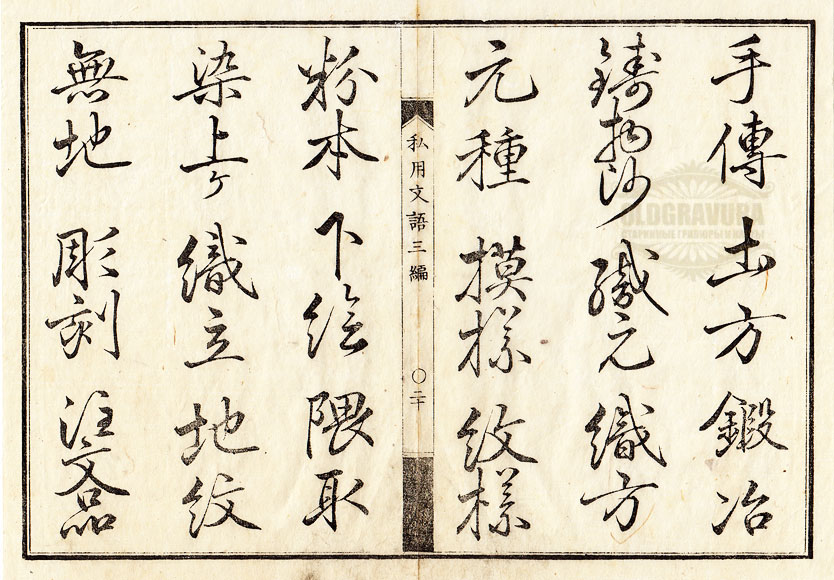 手傳 出方 鍛冶
鑄物沙 織元 織方
元種 摸様 紋様
私用文語三編 〇二十
粉本 下絵 隈取
染上ケ 織立 地紋
無地 彫刻 注文品
OLDGRAVURA
СТАРИННЫЕ ГРАВЮРЫ И КАРТЫ